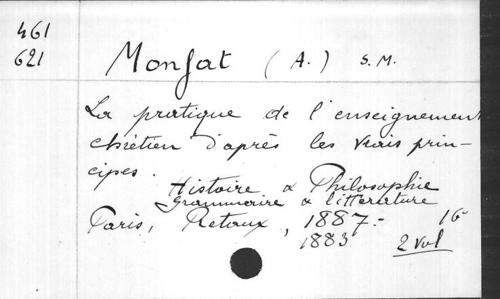 461
621
Monfat (A.) S.M.
La pratique de l'enseignement
chrétien d'après les vrais prin-
cipes.
Histoire & Philosophie
Grammaire & littérature
Paris, Retaux, 1887.- 16°
1883 2 vol